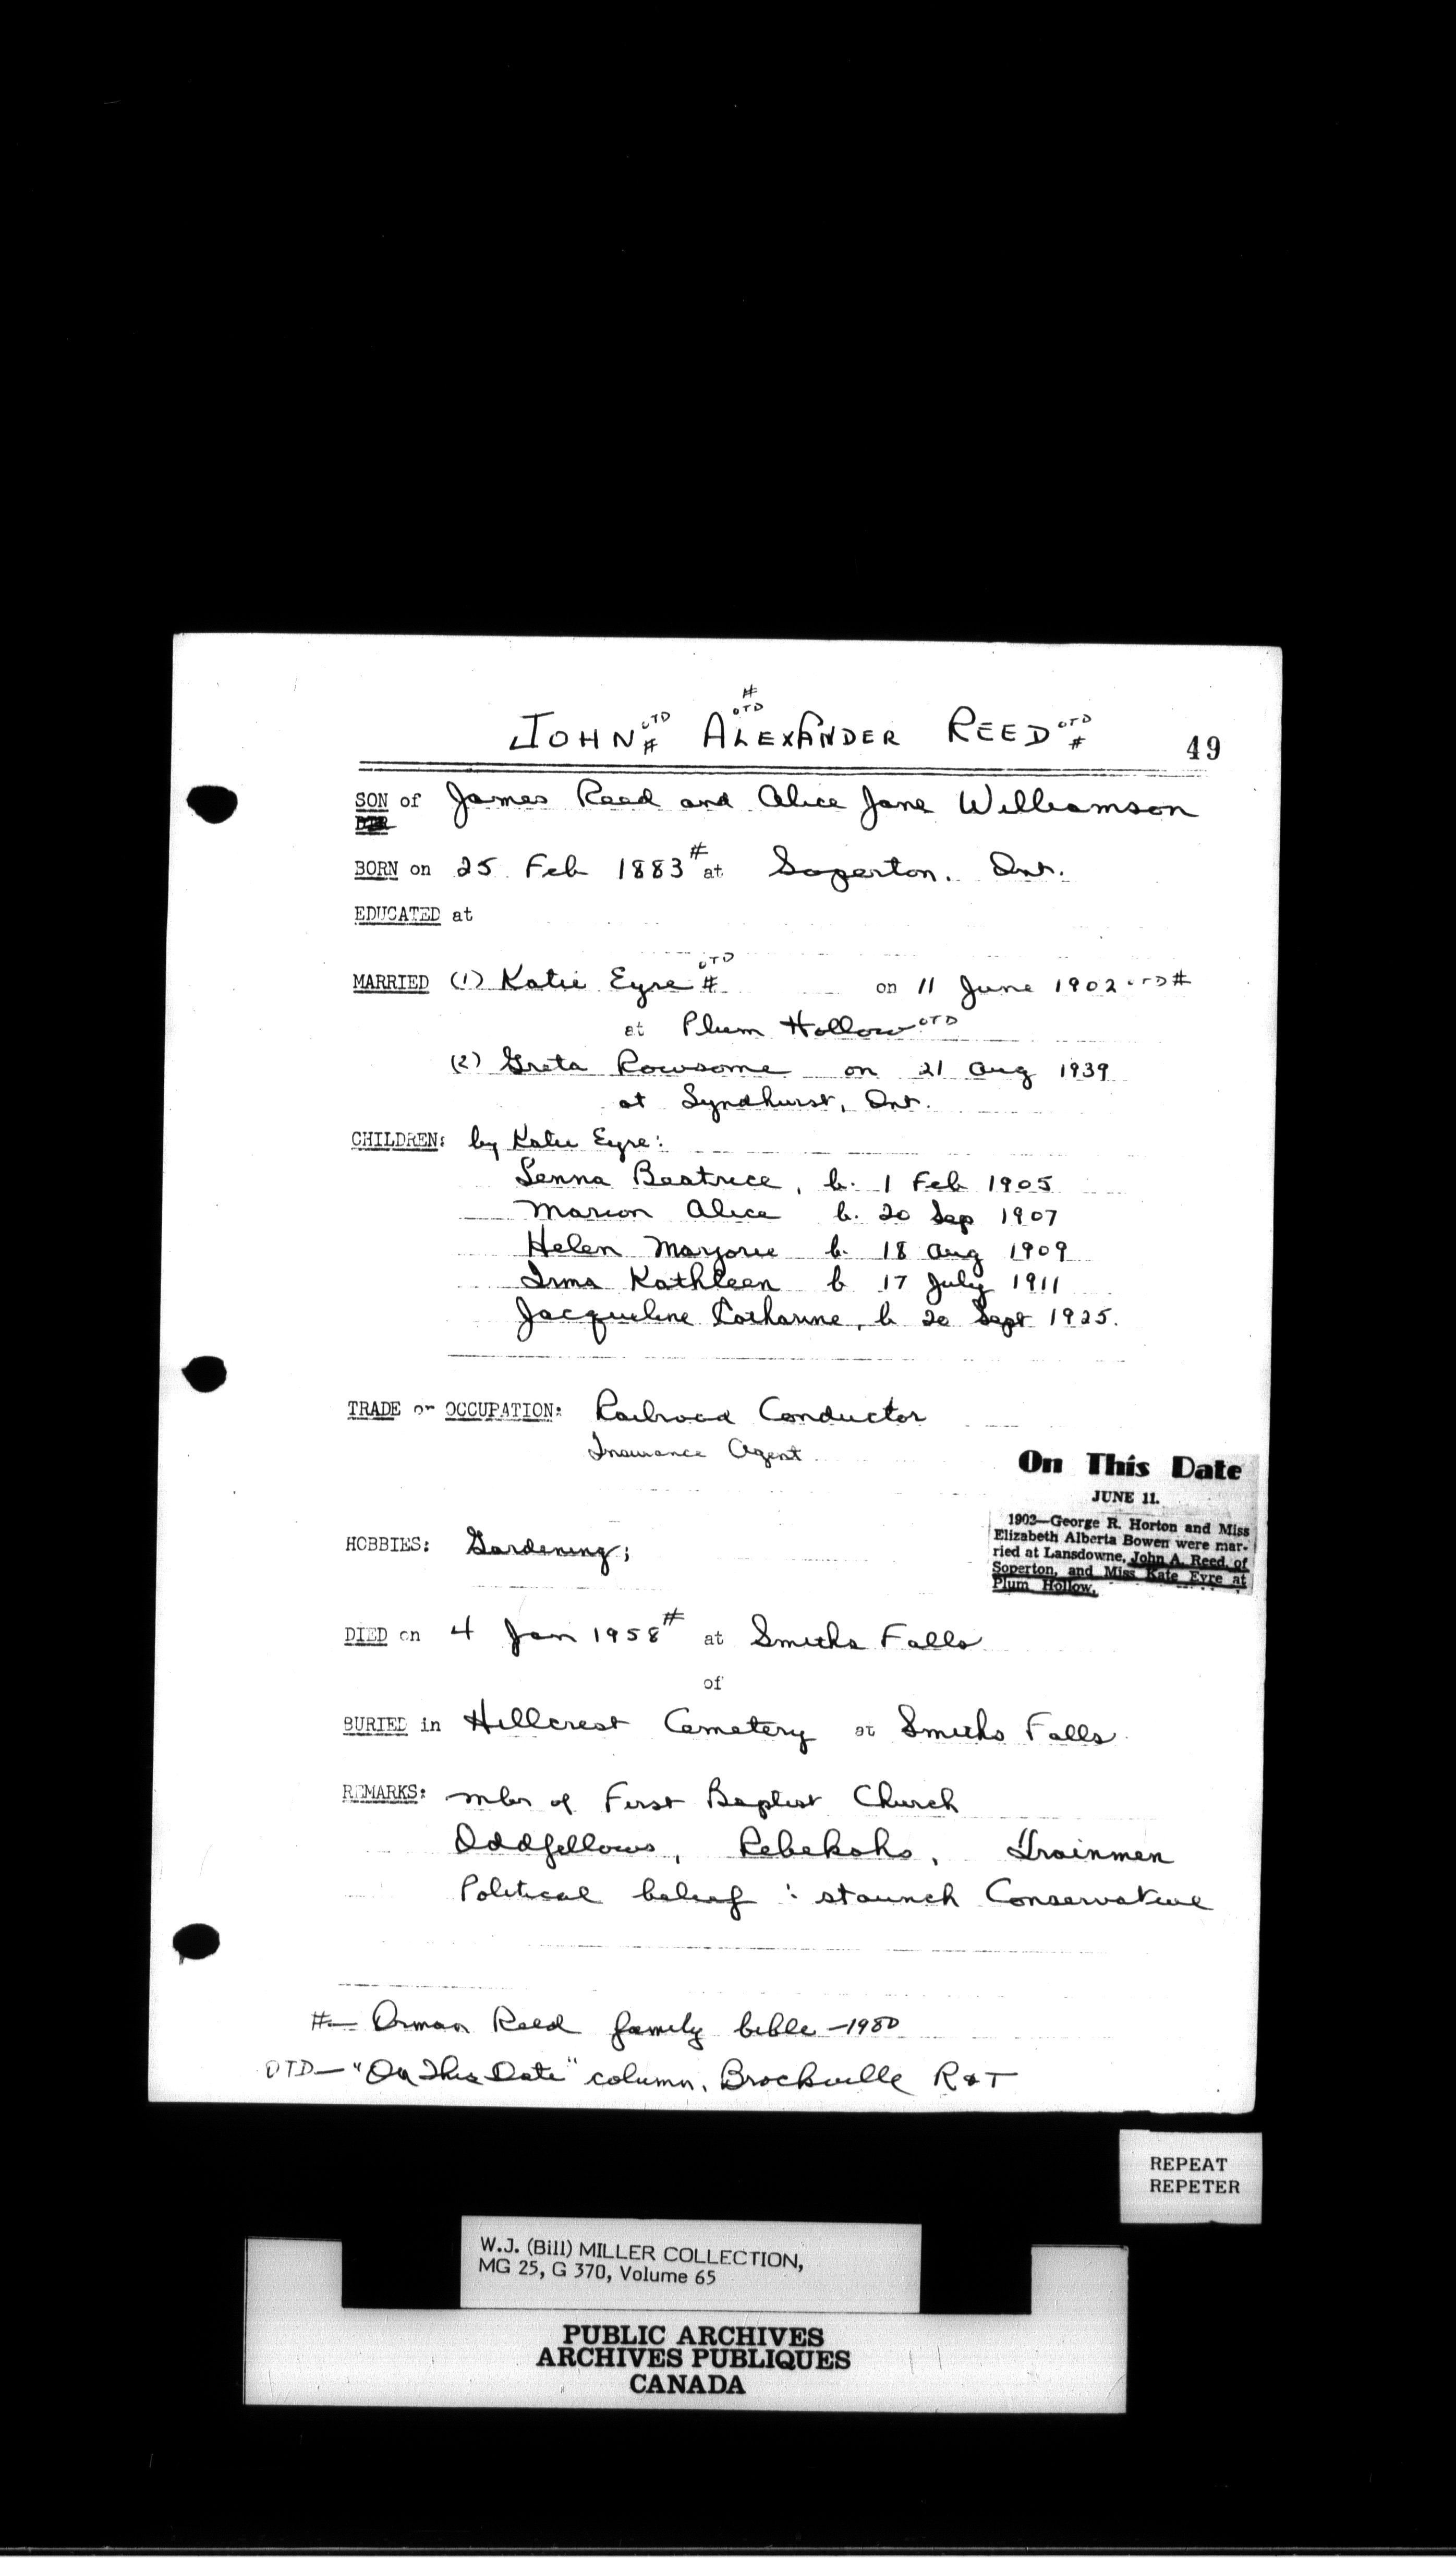 JOHN OTD # ALEXANDER # OTD REED OTD # 49
SON of James Reed and Alice Jane Williamson
DTR
BORN on 25 Feb 1883 # at Soperton, Ont.
EDUCATED at
MARRIED (1) Katie Eyre OTD # on 11 June 1902 OTD #
at Plum Hollow OTD
(2) Greta Rowsome on 21 Aug 1939
at Lyndhurst, Ont.
CHILDREN: by Katie Eyre:
Lenna Beatrice, b. 1 Feb 1905
Marion Alice b. 20 Sep 1907
Helen Marjorie b. 18 Aug 1909
Irma Kathleen b 17 July 1911
Jacqueline Catharine, b 20 Sept 1925.
TRADE or OCCUPATION: Railroad Conductor
Insurance Agent
On This Date
JUNE 11.
1902—George R. Horton and Miss
Elizabeth Alberta Bowen were mar-
ried at Lansdowne, John A. Reed, of
Soperton, and Miss Kate Eyre at
Plum Hollow.
HOBBIES: Gardening;
DIED on 4 Jan 1958 # at Smiths Falls
of
BURIED in Hillcrest Cemetery at Smiths Falls
REMARKS: mbr of First Baptist Church
Oddfellows, Rebekahs, Trainmen
Political belief : staunch Conservative
#— Orman Reed family bible —1980
OTD— "On This Date" column, Brockville R&T
REPEAT
REPETER
W.J. (Bill) MILLER COLLECTION,
MG 25, G 370, Volume 65
PUBLIC ARCHIVES
ARCHIVES PUBLIQUES
CANADA